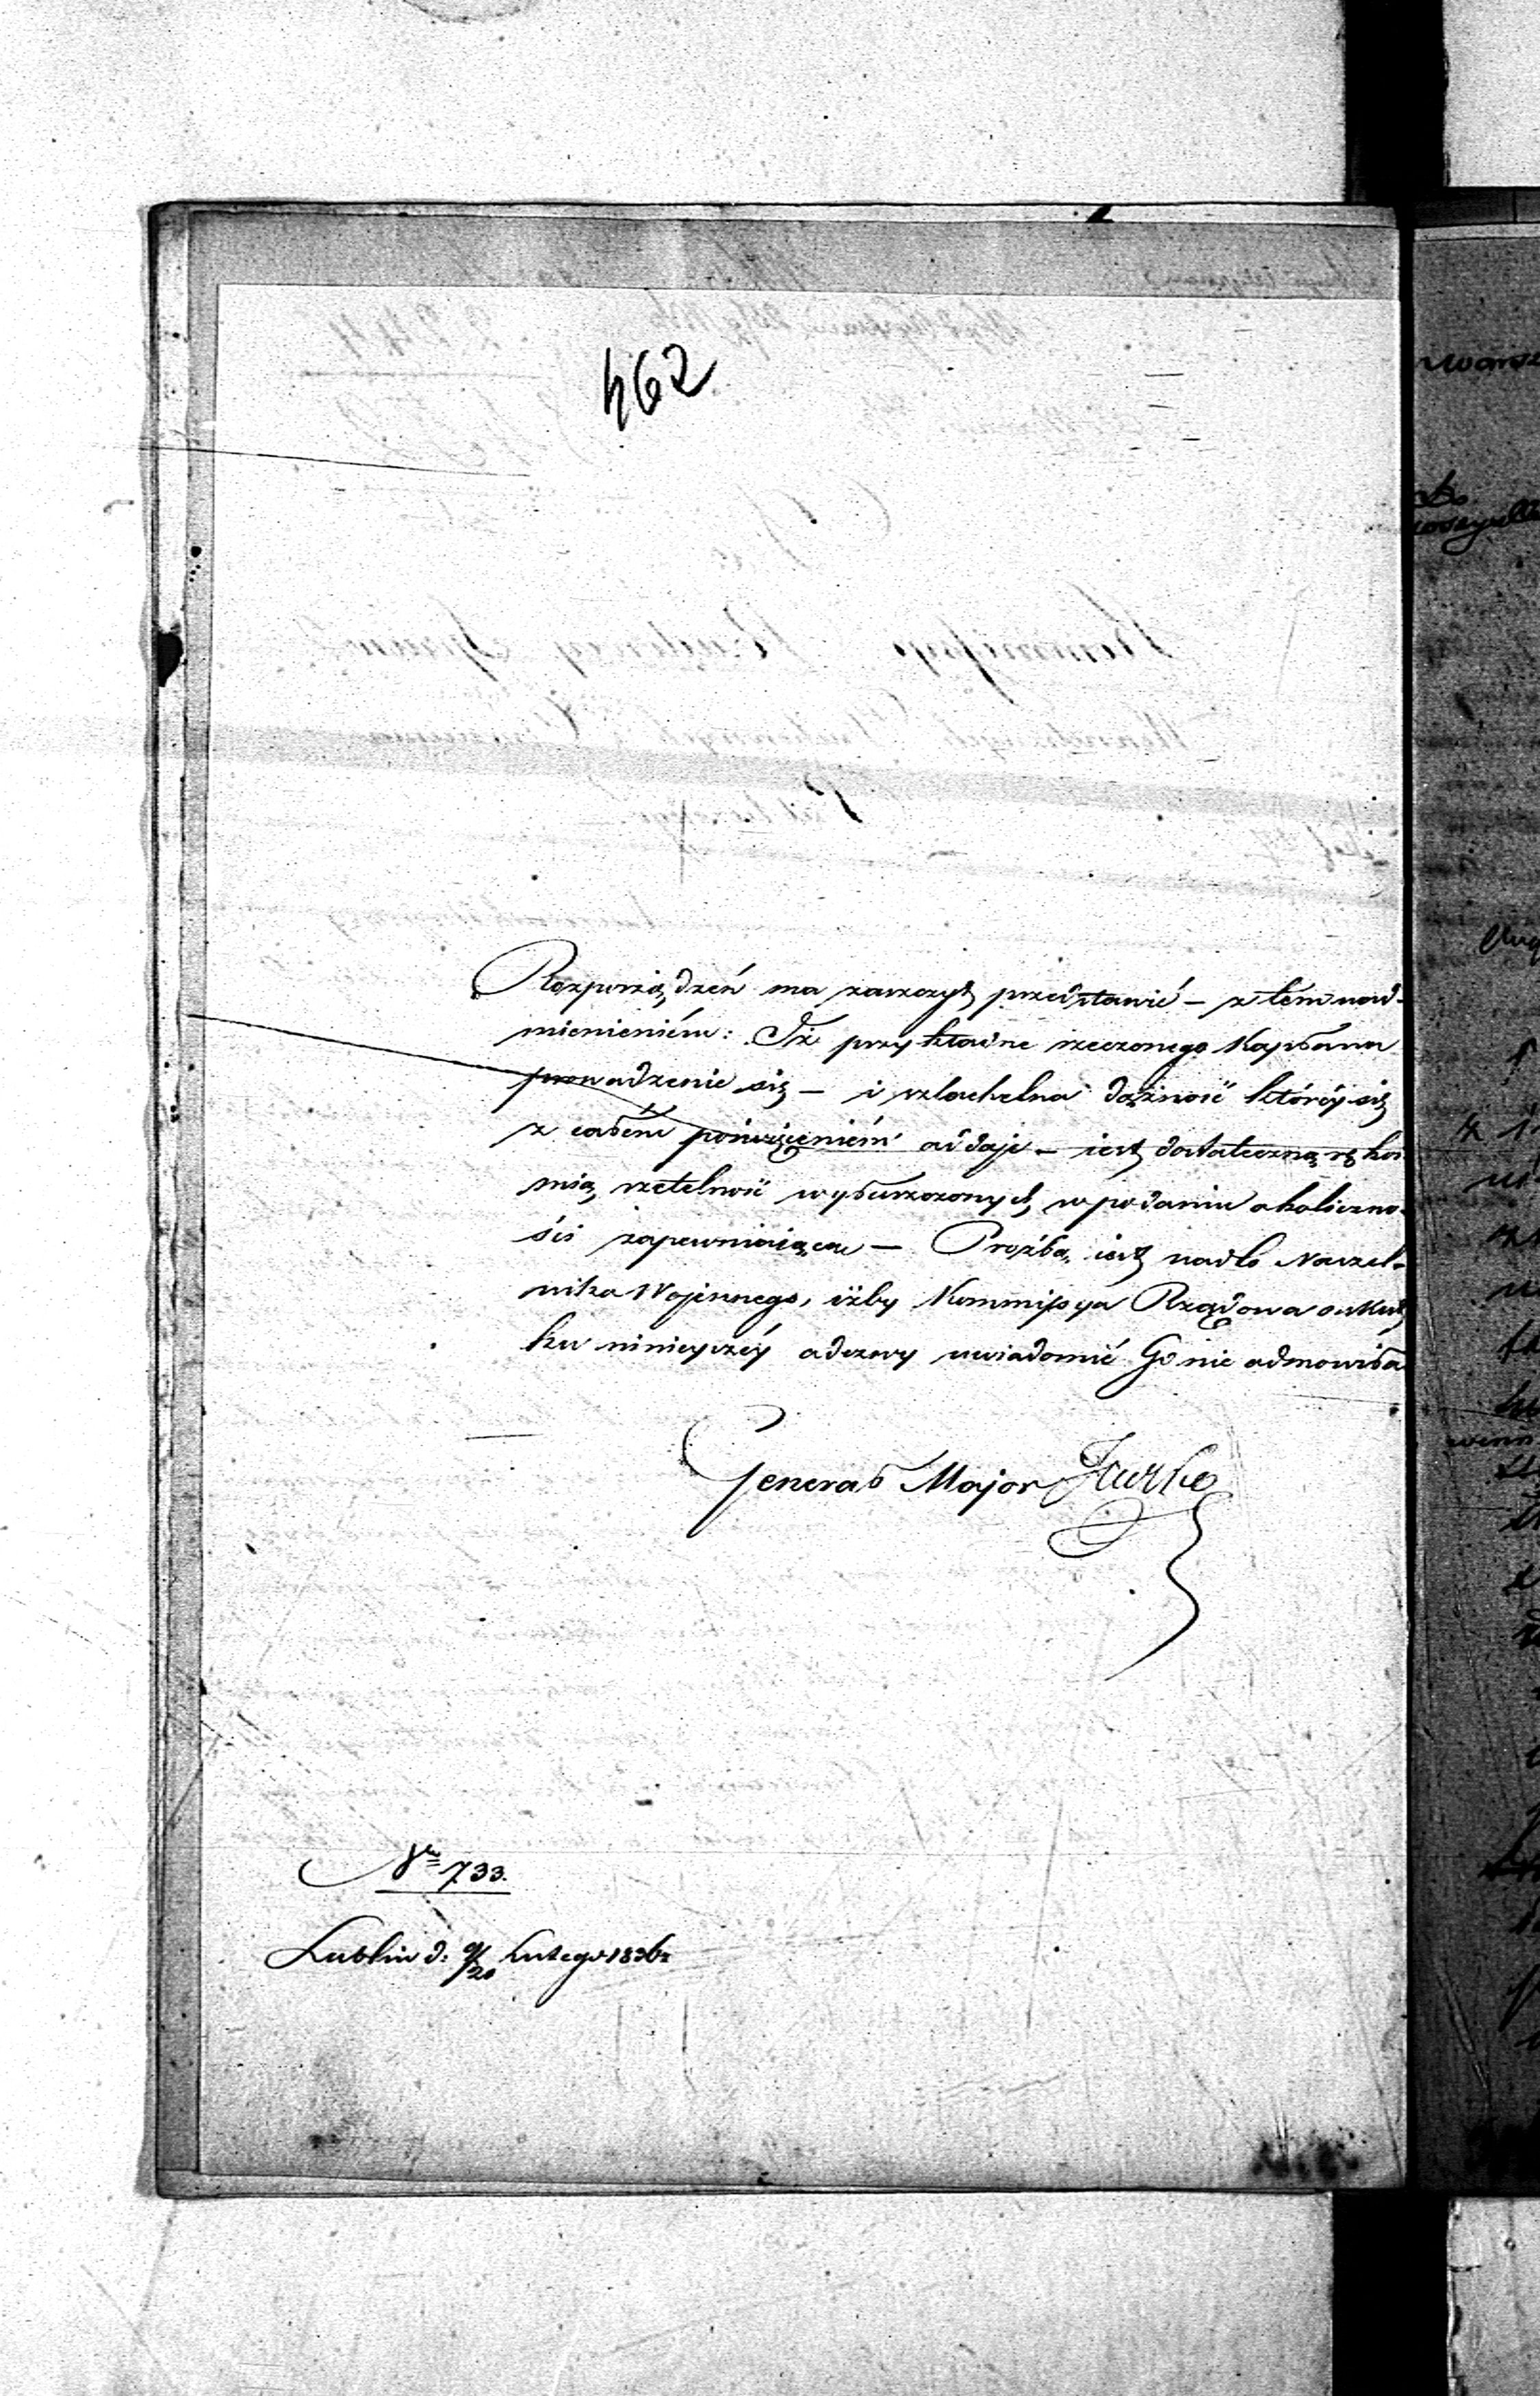 462
Rozporządzeń ma zaszczyt przedstawić – z tém nad-
mienieniém: Iż przykładne rzeczonego Kapłana
prowadzenie się – i szlachetna dążność któréy się
z całém poświęceniém oddaje – iest dostateczną rękoi-
mią, rzetelność wyłuszczonych w podaniu okoliczno-
ści zapewniaiącą – Proźbą iest nadto Naczel-
nika Wojennego, iżby Kommissya Rządowa o skut-
ku ninieyszéy odezwy uwiadomić Go nie odmówiła
Generał Major
Nro 733.
Lublin d: 8/20 Lutego 1836 r